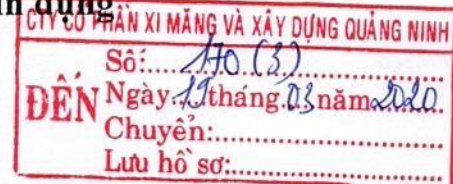 ụng
CTY CỔ PHẦN XI MĂNG VÀ XÂY DỰNG QUẢNG NINH
Số:....170 (3)....
ĐẾN Ngày.19tháng.03năm2020
Chuyển:....
Lưu hồ sơ:....